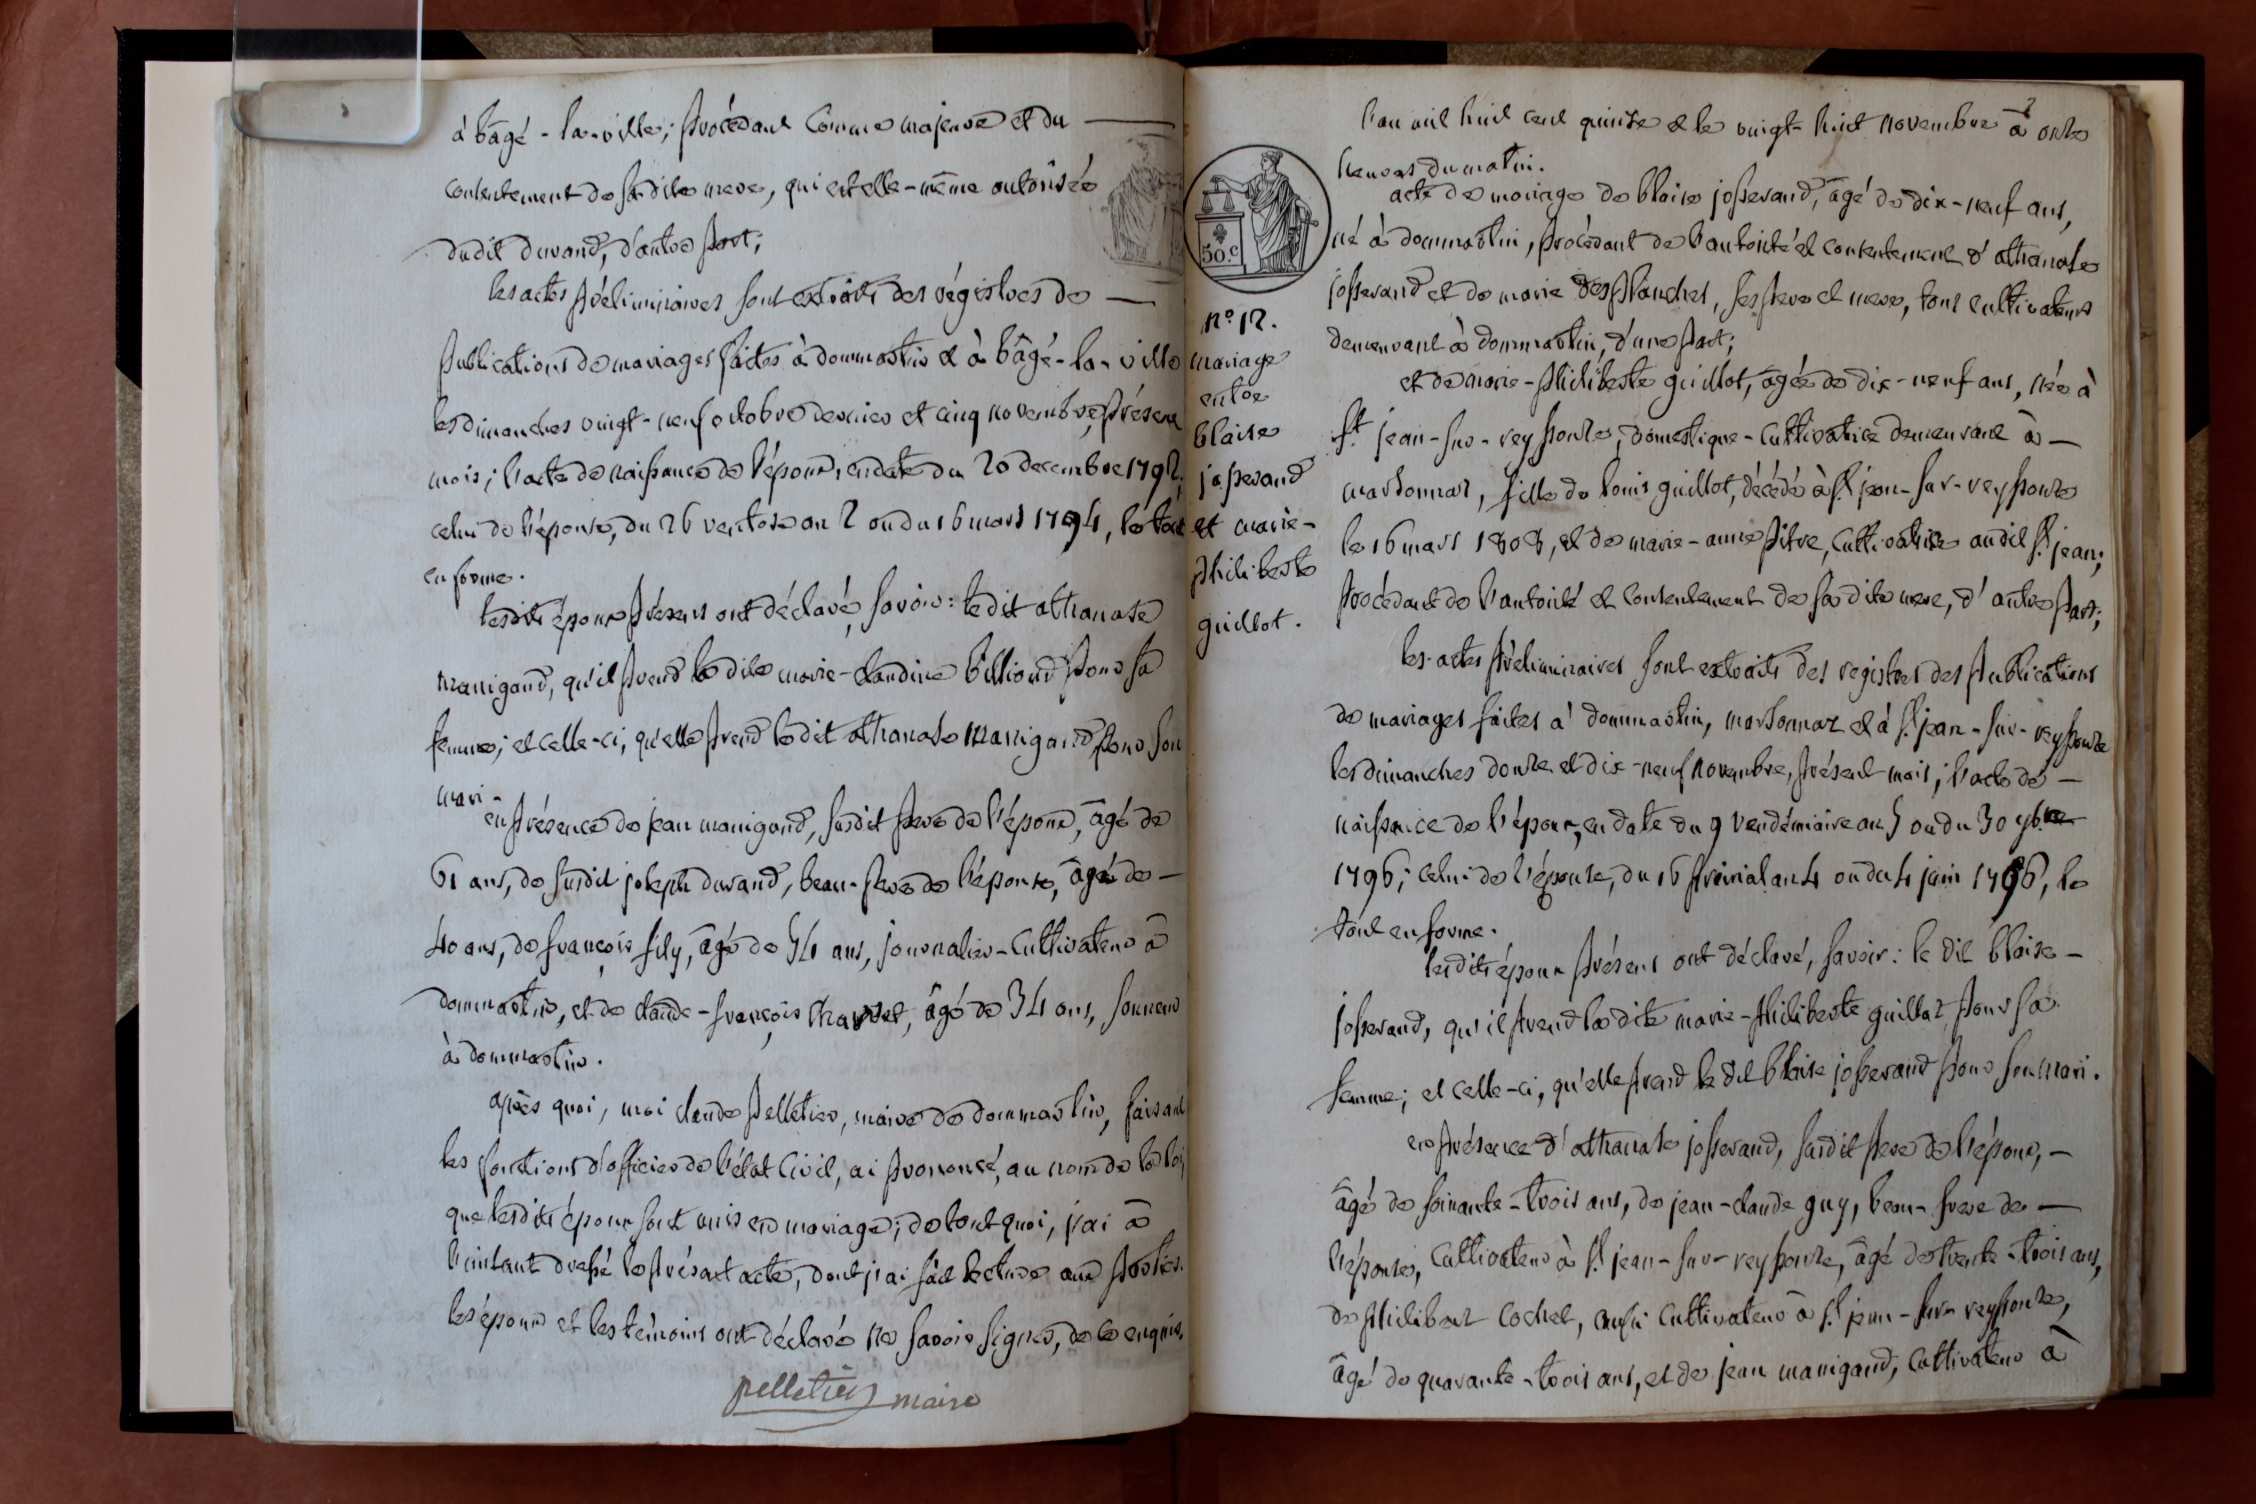 à bâgé-la-ville; procédant comme majeure et du
consentement de sa dite mere, qui est elle-même autorisée
dudit durand, d'autre part;
les actes préliminaires sont extraits des régistres de
publications de mariages faites à dommartin et à bâgé-la-ville
les dimanches vingt-neuf octobre dernier et cinq novembre, présent
mois; l'acte de naissance de l'époux, en date du 20 decembre 1792;
celui de l'épouse, du 26 ventose an 2 ou du 16 mars 1794, le tout
en forme.
lesdits époux présens ont déclaré, savoir: ledit athanase
manigand, qu'il prend la dite marie-claudine billioud pour sa
femme; et celle-ci, qu'elle prend ledit athanase manigand pour son
mari -
en présence de jean manigand, susdit pere de l'époux, âgé de
61 ans, de susdit joseph durand, beau-pere de l'épouse, âgé de
40 ans, de françois fily, âgé de 54 ans, journalier-cultivateur à
dommartin, et de claude-françois âgé de 34 ans, sonneur
à dommartin.
après quoi, moi claude pelletier, maire de dommartin, faisant
les fonctions d'officier de l'état civil, ai prononcé, au nom de la loi,
que lesdits époux sont unis en mariage; de tout quoi, j'ai à
l'instant dressé le présent acte, dont j'ai fait lecture aux parties.
les époux et les témoins ont déclaré ne savoir signer, de ce enquis.
pelletier maire
50.c
n.o 12.
mariage
entre
blaise
josserand
et marie-
philiberte
guillot.
l'an mil huit cent quinze et le vingt-huit novembre à onze
heures du matin.
acte de mariage de blaise josserand, âgé de dix-neuf ans,
né à dommartin, procédant de l'autorité et consentement d'athanase
josserand et de marie desplanches, ses pere et mere, tous cultivateurs
demeurant à dommartin, d'une part;
et de marie-philiberte guillot, âgée de dix-neuf ans, née à
st. jean-sur-reyssouze, domestique-cultivatrice demeurant à
marsonnas, fille de louis guillot, décédé à st. jean-sur-reyssouze
le 16 mars 1808, et de marie-anne pitre, cultivatrice audit st. jean;
procédant de l'autorité et consentement de sa dite mere, d'autre part;
les actes préliminaires sont extraits des registres des publications
de mariages faites à dommartin, marsonnaz et à st. jean-sur-reyssouze
les dimanches douze et dix-neuf novembre, présent mois; l'acte de
naissance de l'époux, en date du 9 vendémiaire an 5 ou du 30 7bre
1796; celui de l'épouse, du 16 prairial an 4 ou du 4 juin 1796, le
tout en forme.
lesdits époux présens ont déclaré, savoir: le dit blaise
josserand, qu'il prend la dite marie-philiberte guillot pour sa
femme; et celle-ci, qu'elle prend le dit blaise josserand pour son mari.
en présence d'athanase josserand, susdit pere de l'époux,
âgé de soixante-trois ans, de jean-claude guy, beau-frere de
l'épouse, cultivateur à st. jean-sur-reyssouze, âgé de trente-trois ans,
de philibert cochet, aussi cultivateur à st. jean-sur-reyssouze,
âgé de quarante-trois ans, et de jean manigand, cultivateur à